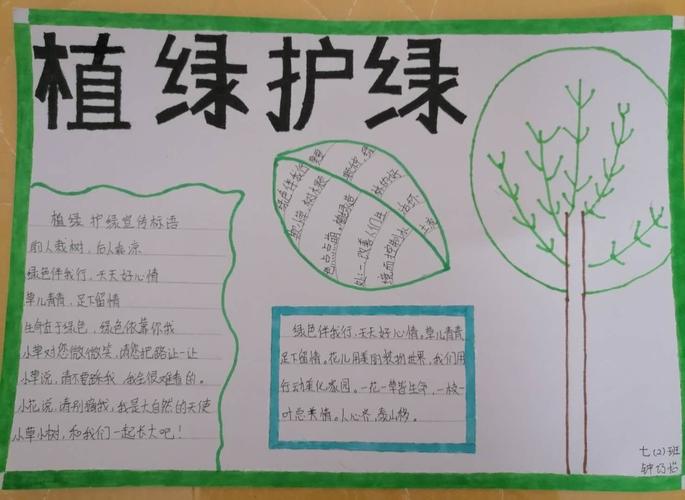 植绿护绿
植绿护绿宣传标语
前人栽树，后人乘凉
绿色伴我行，天天好心情
草儿青青，足下留情
生命在于绿色，绿色依靠你我
小草对您微微笑，请您把路让一让
小草说，请不要踩我，我会很难看的。
小花说，请别摘我，我是大自然的天使
小草小树，和我们一起长大吧！
绿色伴我行
绿色伴我行，天天好心情。草儿青青
足下留情。花儿用美丽装扮世界，我们用
行动美化家园。一花一草皆生命，一枝一
叶总关情。人心齐，泰山移。
七(2)班